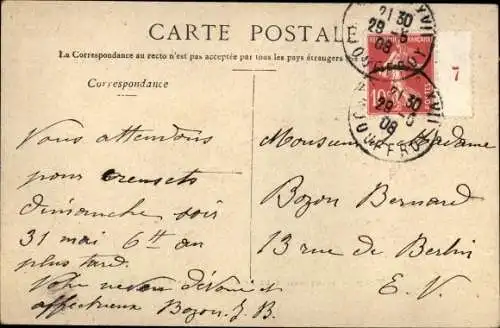 CARTE POSTALE
La Correspondance au recto n'est pas acceptée par tous les pays étrangers
Correspondance
21 30
29-5
08
7
21 30
29-5
08
10
Vous attendons
pour
dimanche soir
31 mai 6h au
plus tard.
Votre neveu dévoué et
affectueux Bozon. J. B.
Monsieur Madame
Bozon Bernard
13 rue de Berlin
E. V.